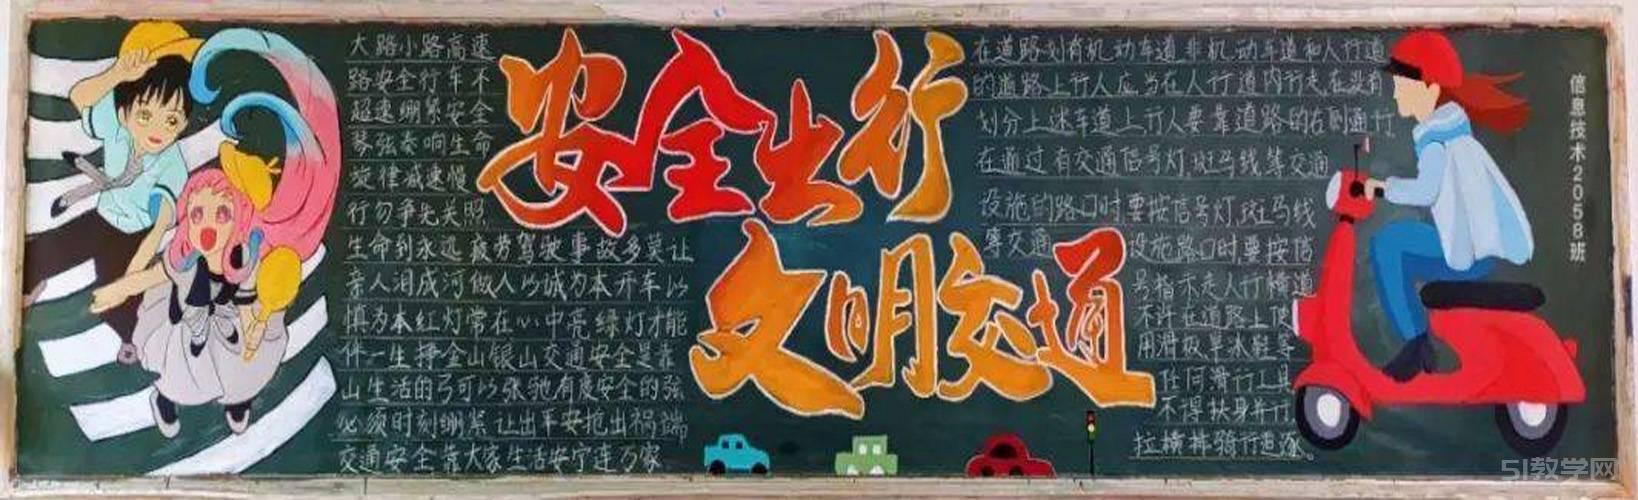 大路小路高速
路安全行车不
超速绷紧安全
琴弦奏响生命
旋律减速慢
行勿争先关照
生命到永远疲劳驾驶事故多莫让
亲人泪成河做人以诚为本开车以
慎为本红灯常在心中亮绿灯才能
伴一生挣金山银山交通安全是靠
山生活的弓可以张驰有度安全的弦
必须时刻绷紧让出平安抢出祸端
交通安全靠大家生活安宁连万家
安全出行
文明交通
在道路划有机动车道非机动车道和人行道
的道路上行人应当在人行道内行走在没有
划分上述车道上行人要靠道路的右侧通行
在通过有交通信号灯斑马线等交通
设施的路口时要按信号灯斑马线
等交通 设施路口时要按信
号指示走人行横道
不许在道路上使
用滑板旱冰鞋等
任何滑行工具
不得扶身并行
拉横排骑行追逐。
信息技术2058班
51教学网